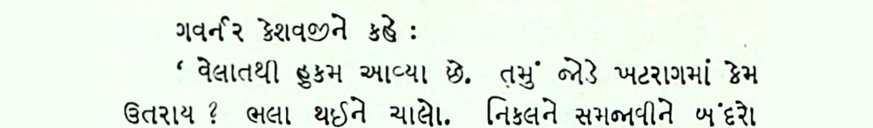 ગવર્નર કેશવજીને કહે :
‘ વેલાતથી હુકમ આવ્યા છે. તમું જોડે ખટરાગમાં કેમ
ઉતરાય ? ભલા થઈને ચાલો. નિકલને સમજાવીને બંદરો